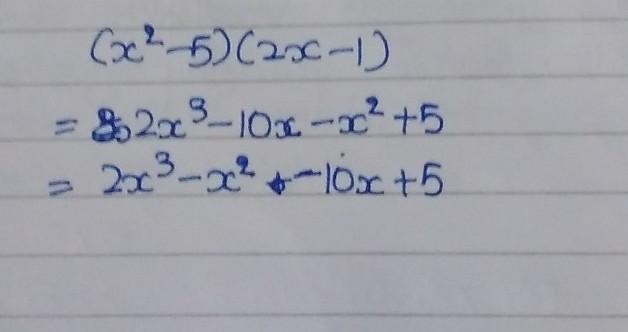 (x²-5)(2x-1)
= 2x³-10x-x²+5
= 2x³-x²-10x+5